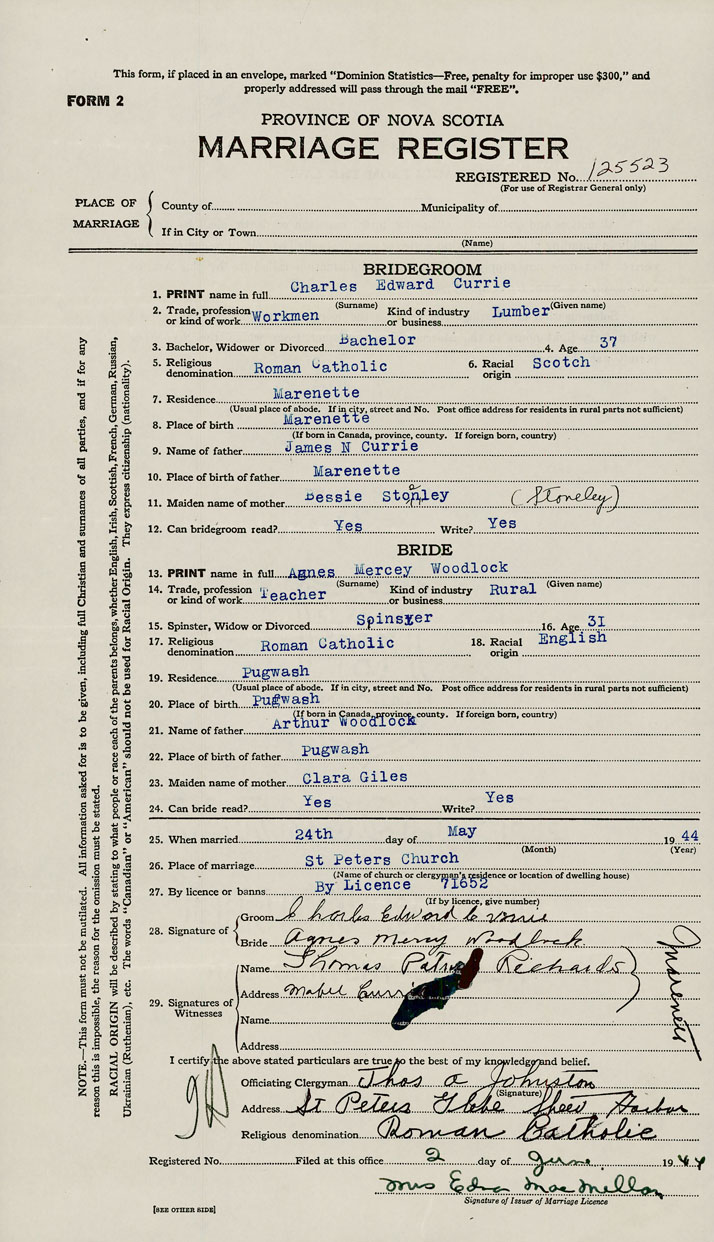 This form, if placed in an envelope, marked "Dominion Statistics—Free, penalty for improper use $300," and
properly addressed will pass through the mail "FREE".
FORM 2
PROVINCE OF NOVA SCOTIA
MARRIAGE REGISTER
REGISTERED No. 125523
(For use of Registrar General only)
PLACE OF MARRIAGE
County of Municipality of
If in City or Town
(Name)
BRIDEGROOM
1. PRINT name in full Charles Edward Currie
(Surname) (Given name)
2. Trade, profession or kind of work Workmen Kind of industry or business Lumber
3. Bachelor, Widower or Divorced Bachelor 4. Age 37
5. Religious denomination Roman Catholic 6. Racial origin Scotch
7. Residence Marenette
(Usual place of abode. If in city, street and No. Post office address for residents in rural parts not sufficient)
8. Place of birth Marenette
(If born in Canada, province, county. If foreign born, country)
9. Name of father James N Currie
10. Place of birth of father Marenette
11. Maiden name of mother Bessie Stonley (Stoneley)
12. Can bridegroom read? Yes Write? Yes
BRIDE
13. PRINT name in full Agnes Mercey Woodlock
(Surname) (Given name)
14. Trade, profession or kind of work Teacher Kind of industry or business Rural
15. Spinster, Widow or Divorced Spinster 16. Age 31
17. Religious denomination Roman Catholic 18. Racial origin English
19. Residence Pugwash
(Usual place of abode. If in city, street and No. Post office address for residents in rural parts not sufficient)
20. Place of birth Pugwash
(If born in Canada, province, county. If foreign born, country)
21. Name of father Arthur Woodlock
22. Place of birth of father Pugwash
23. Maiden name of mother Clara Giles
24. Can bride read? Yes Write? Yes
25. When married 24th day of May 1944
(Month) (Year)
26. Place of marriage St Peters Church
(Name of church or clergyman's residence or location of dwelling house)
27. By licence or banns By Licence 71652
(If by licence, give number)
28. Signature of
Groom Charles Edward Currie
Bride Agnes Mercy Woodlock
29. Signatures of Witnesses
Name Thomas Patrick Richards
Address Mabel Currie
Name
Address
Marenett
I certify the above stated particulars are true to the best of my knowledge and belief.
Officiating Clergyman Thos a Johnston
(Signature)
Address St Peters Glebe Sheet Harbor
Religious denomination Roman Catholic
Registered No. Filed at this office 2 day of June 1944
Mrs Edna MacMillan
Signature of Issuer of Marriage Licence
[SEE OTHER SIDE]
NOTE.—This form must not be mutilated. All information asked for is to be given, including full Christian and surnames of all parties, and if for any
reason this is impossible, the reason for the omission must be stated.
RACIAL ORIGIN will be described by stating to what people or race each of the parents belongs, whether English, Irish, Scottish, French, German, Russian,
Ukrainian (Ruthenian), etc. The words "Canadian" or "American" should not be used for Racial Origin. They express citizenship (nationality).